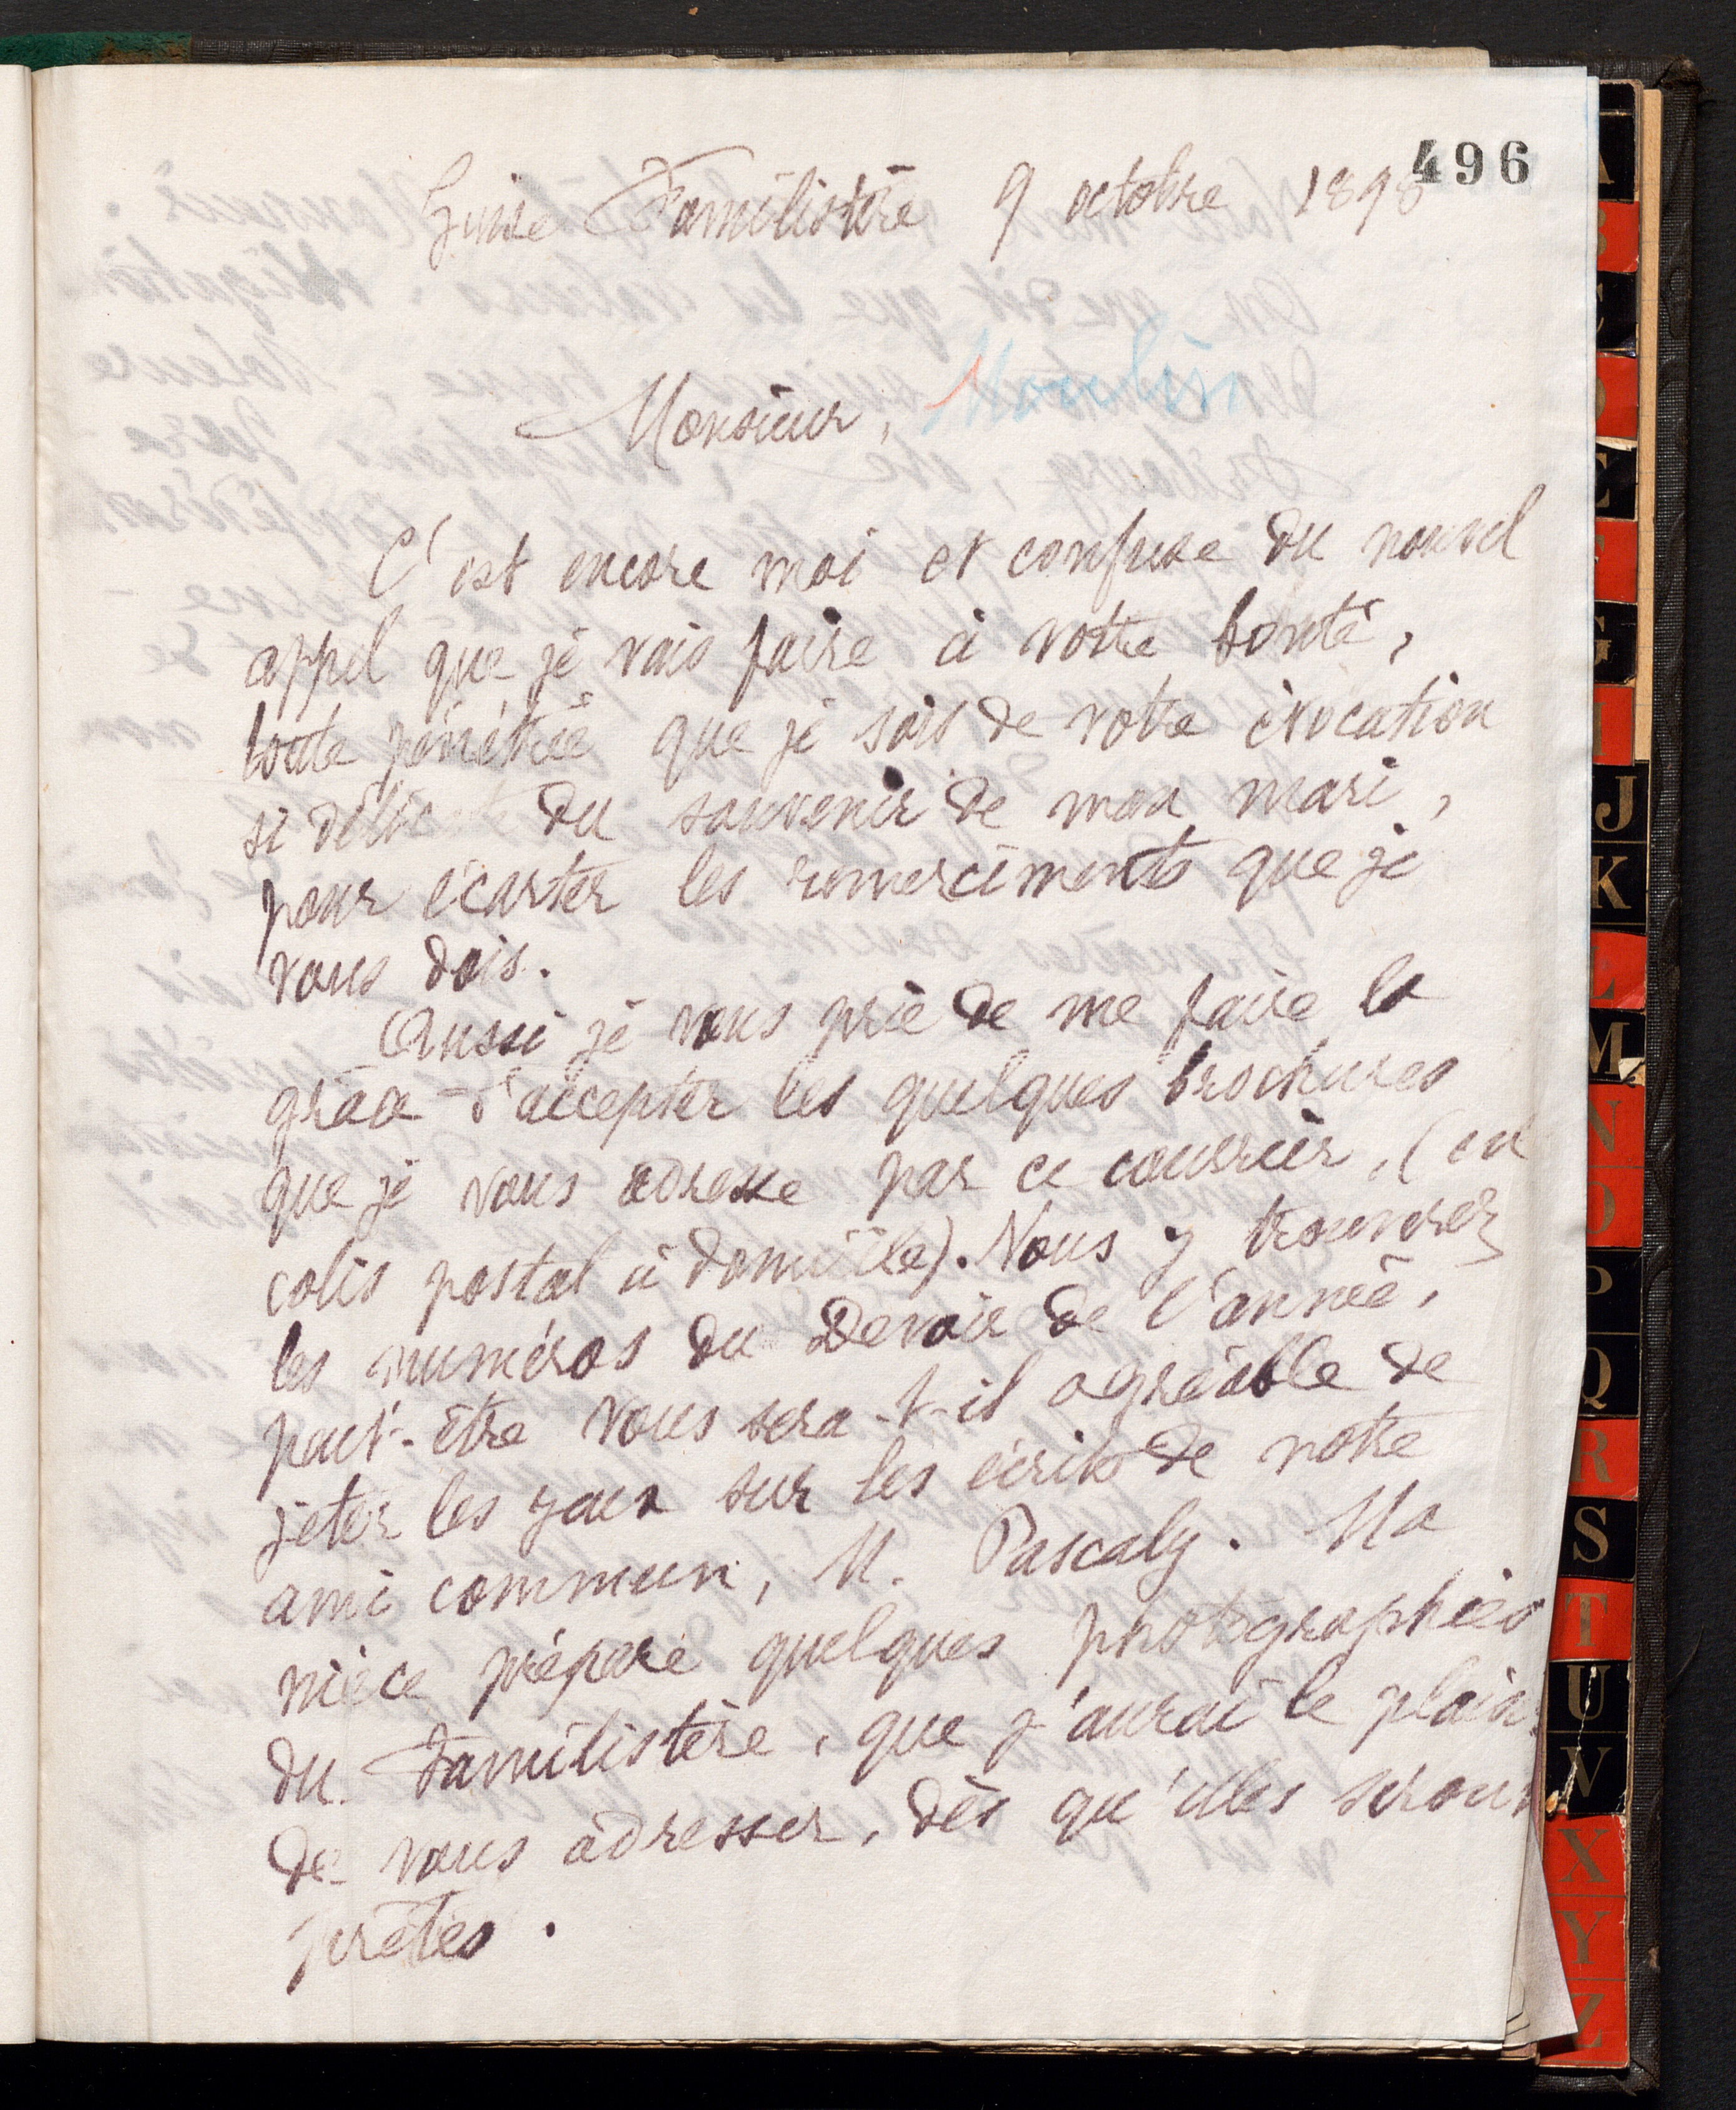 496
Guise Familistère 9 octobre 1898
Monsieur, Moulin
C'est encore moi et confuse du nouvel
appel que je vais faire à votre bonté,
toute pénétrée que je sois de votre évocation
si délic du souvenir de mon mari,
pour écarter les remercîments que je
vous dois.
Aussi je vous prie de me faire la
grâce d'accepter les quelques brochures
que je vous adresse par ce courrier, (en
colis postal à domicile). Vous y trouverez
les numéros du Devoir de l'année,
peut-être vous sera-t-il agréable de
jeter les yeux sur les écrits de notre
ami commun, M. Pascaly. Ma
nièce prépare quelques photographies
du Familistère, que j'aurai le plais
de vous adresser, dès qu'elles seront
prêtes.
J
K
S
U
V